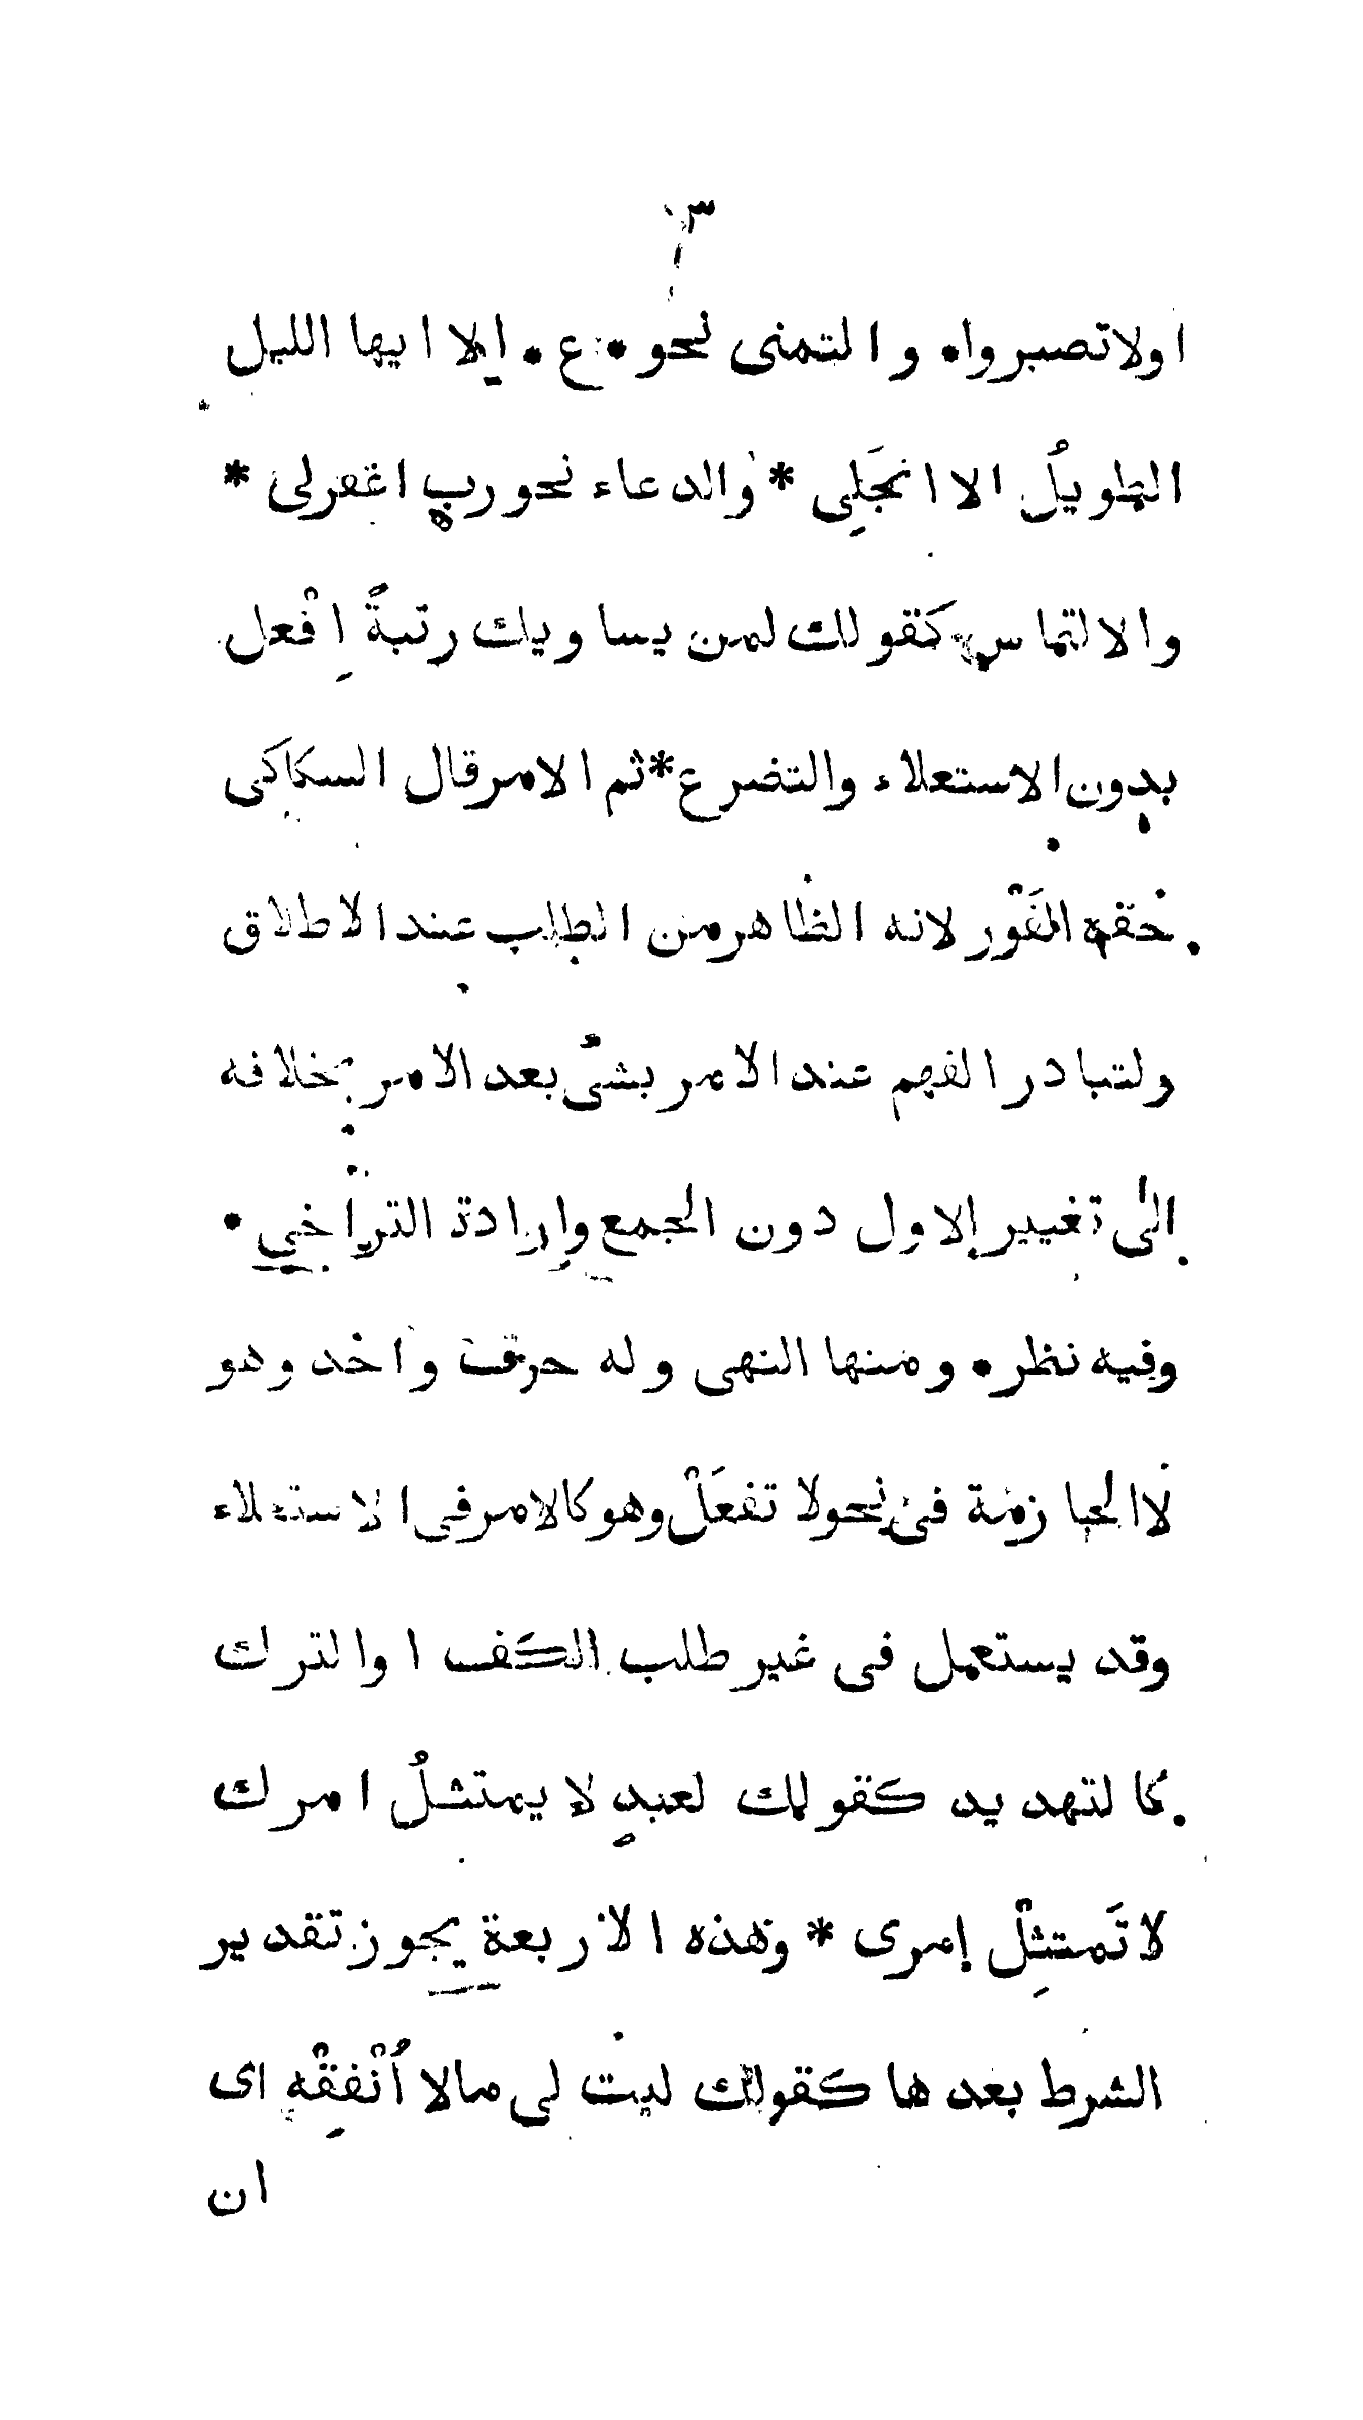 ٣
اولاتصبروا* والتمنى نحو * ع * الا ايها الليل
الطويلُ الا انجَلِى * والدعاء نحو ربِ اغفرلى *
والالتماس كقولك لمن يساويك رتبةً اِفْعل
بدون الاستعلاء والتضرع * ثم الامر قال السكاكى
حقه الفَوْر لانه الظاهر من الطلب عند الاطلاق
ولتبادر الفهم عند الامر بشئ بعد الامر بخلافه
الى تغيير الاول دون الجمع وارادة التراخى *
وفيه نظر * ومنها النهى وله حرف واحد وهو
لا الجازمة فى نحو لا تفعَلْ وهو كالامر فى الاستعلاء
وقد يستعمل فى غير طلب الكف او الترك
كالتهديد كقولك لعبدٍ لا يمتثلُ امرك
لا تَمتثِلْ امرى * وهذه الاربعة يجوز تقدير
الشرط بعدها كقولك ليت لى مالا اُنْفِقْه اى
ان